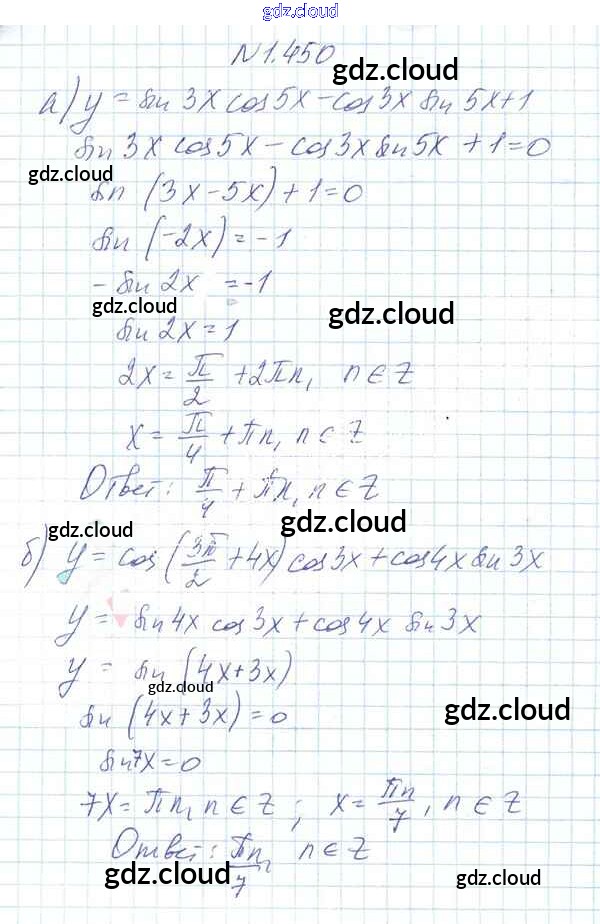 gdz.cloud
N 1.450
gdz.cloud
а) y = sin 3x cos 5x - cos 3x sin 5x + 1
sin 3x cos 5x - cos 3x sin 5x + 1 = 0
gdz.cloud
gdz.cloud
sin (3x - 5x) + 1 = 0
sin (-2x) = -1
- sin 2x = -1
gdz.cloud
gdz.cloud
sin 2x = 1
2x = π/2 + 2πn, n ∈ Z
x = π/4 + πn, n ∈ Z
Ответ: π/4 + πn, n ∈ Z
gdz.cloud
gdz.cloud
б) y = cos (3π/2 + 4x) cos 3x + cos 4x sin 3x
y = sin 4x cos 3x + cos 4x sin 3x
y = sin (4x + 3x)
gdz.cloud
sin (4x + 3x) = 0
gdz.cloud
sin 7x = 0
7x = πn, n ∈ Z; x = πn/7, n ∈ Z
Ответ: πn/7, n ∈ Z
gdz.cloud
gdz.cloud